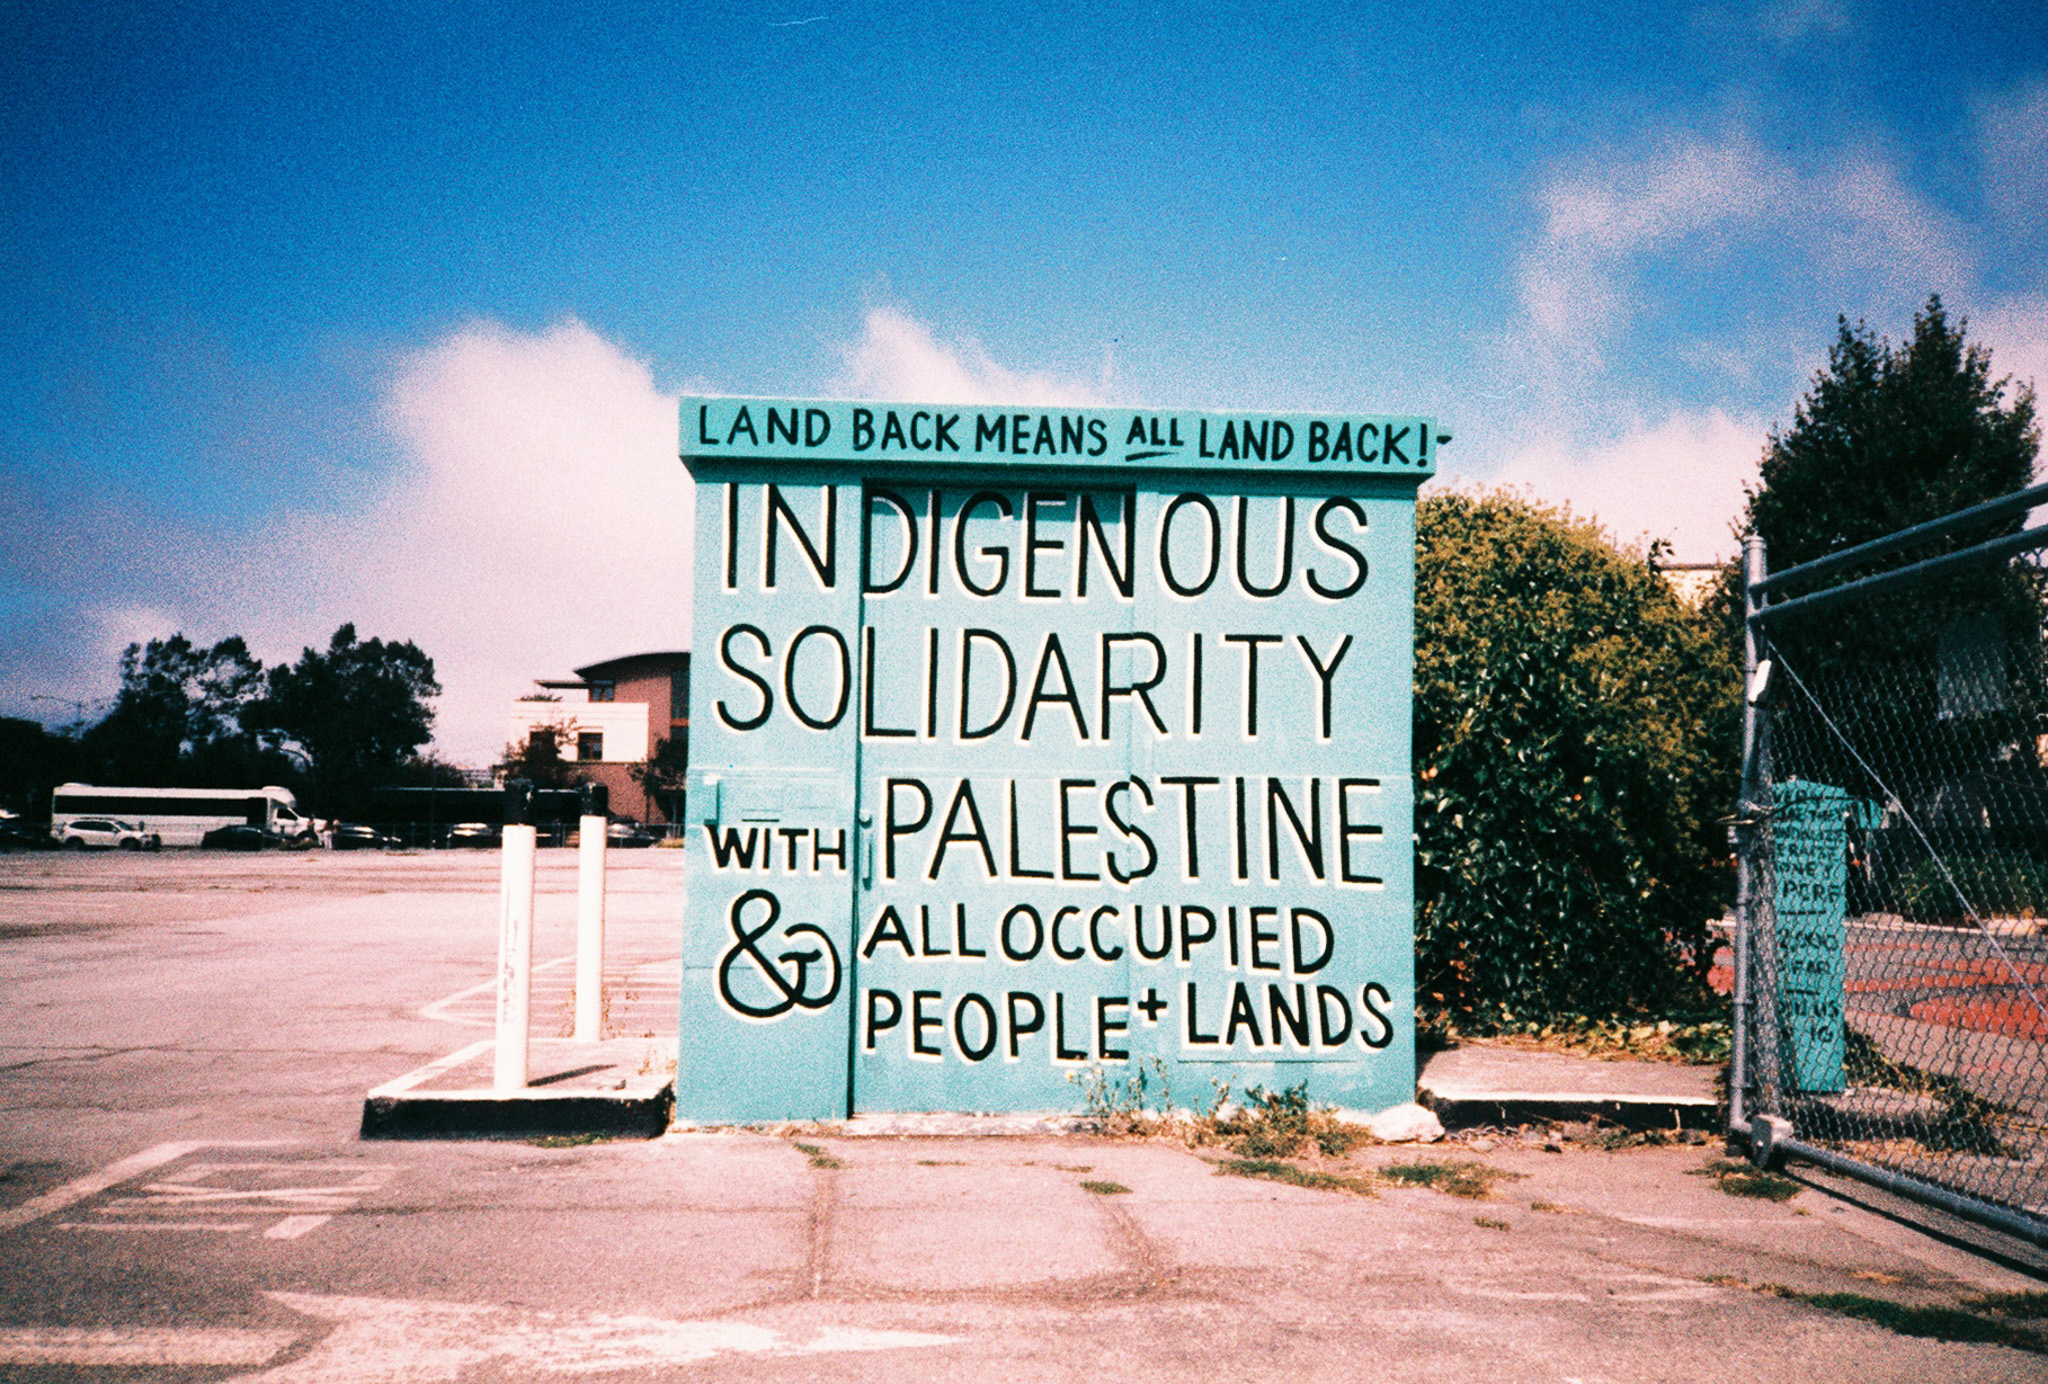 LAND BACK MEANS ALL LAND BACK!
INDIGENOUS
SOLIDARITY
WITH PALESTINE
& ALL OCCUPIED
PEOPLE + LANDS